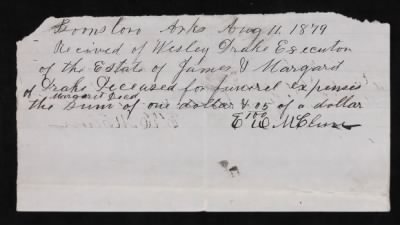 Boonsboro Arks Aug 11, 1879
Recived of Wesley Drake Executor
of the Estate of James & Margard
Drake Deceased for funerel expenses
of Margaret Deed
the Sum of one dollar & 05/100 of a dollar
McClure